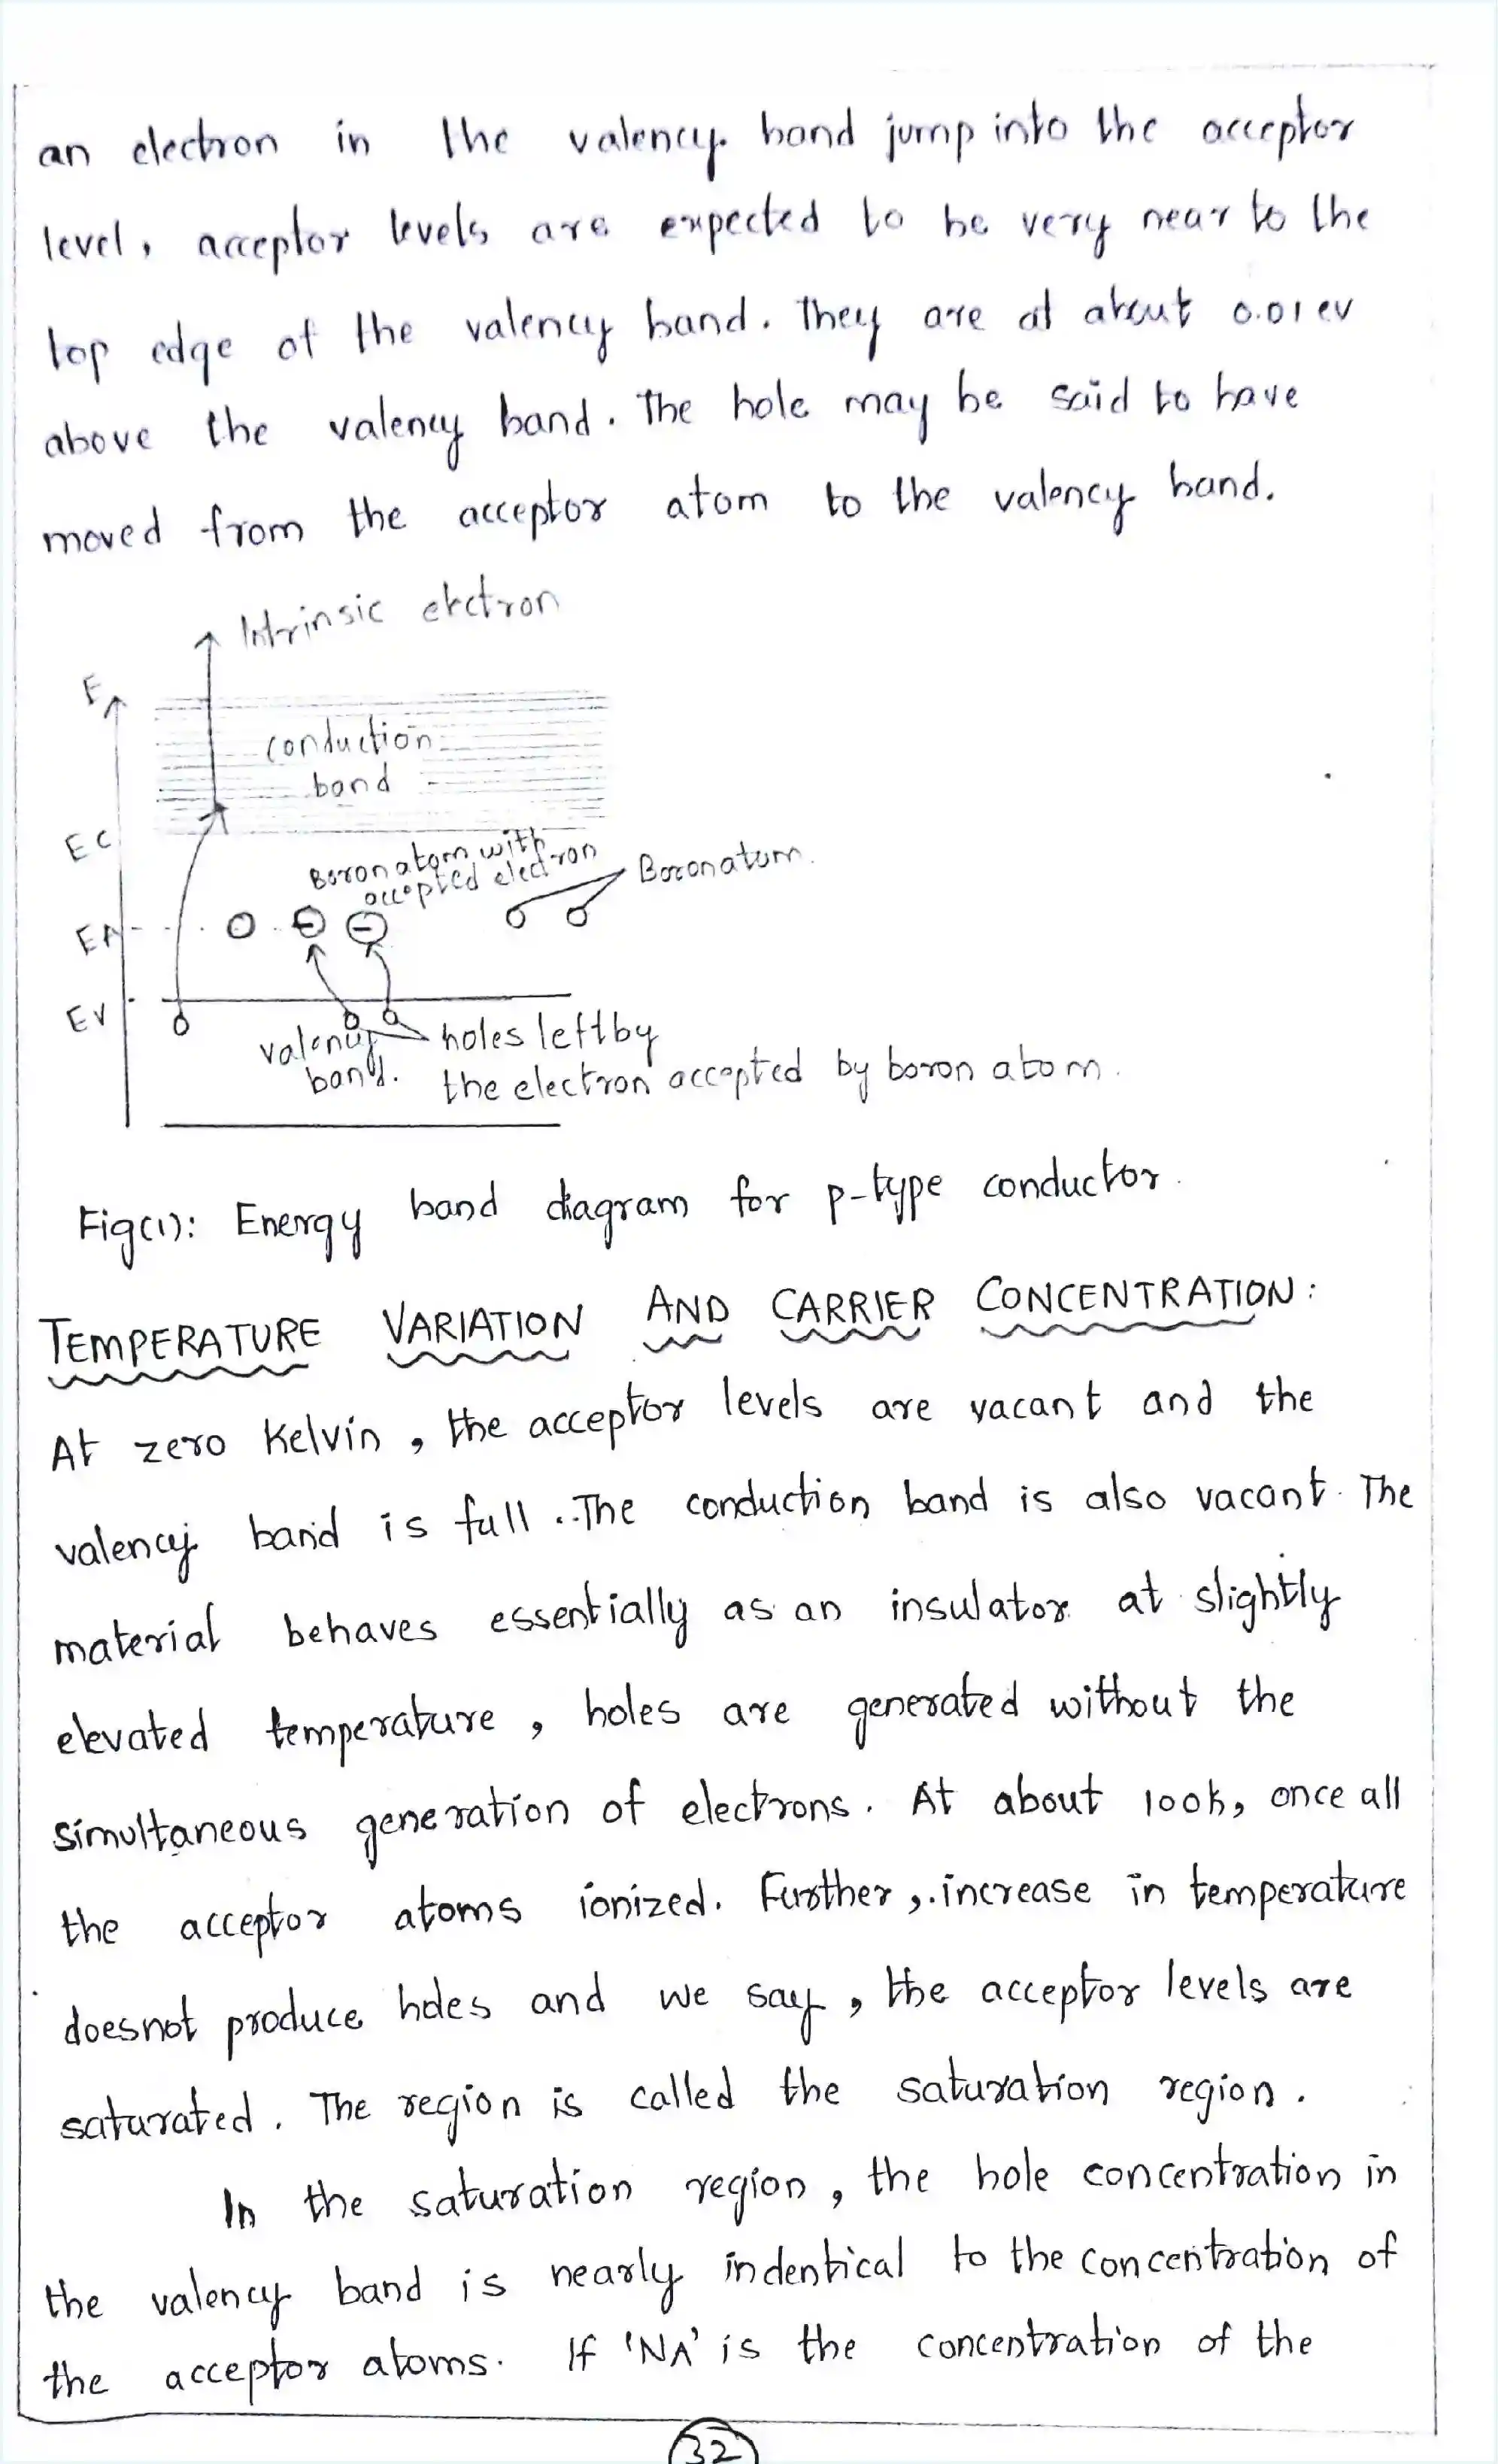 an electron in the valency band jump into the acceptor
level, acceptor levels are expected to be very near to the
top edge of the valency band. They are at about 0.01 ev
above the valency band. The hole may be said to have
moved from the acceptor atom to the valency band.
Intrinsic electron
E
conduction
band
EC
Boron atom with
accepted electron
Boron atom.
EA
EV
valency
band.
holes left by
the electron accepted by boron atom.
Fig(1): Energy band diagram for p-type conductor.
TEMPERATURE VARIATION AND CARRIER CONCENTRATION:
At zero Kelvin, the acceptor levels are vacant and the
valency band is full. The conduction band is also vacant. The
material behaves essentially as an insulator at slightly
elevated temperature, holes are generated without the
simultaneous generation of electrons. At about 100k, once all
the acceptor atoms ionized. Further, increase in temperature
doesnot produce holes and we say, the acceptor levels are
saturated. The region is called the saturation region.
In the saturation region, the hole concentration in
the valency band is nearly indentical to the concentration of
the acceptor atoms. If 'NA' is the concentration of the
32